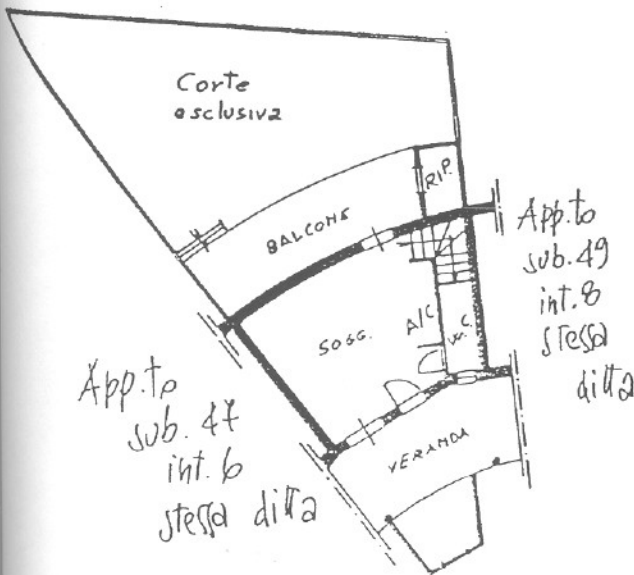 Corte
esclusiva
RIP.
BALCONE
App.to
sub. 49
int. 8
stessa
ditta
SOGG.
A/C
W.C.
App.to
sub. 47
int. 6
stessa ditta
VERANDA